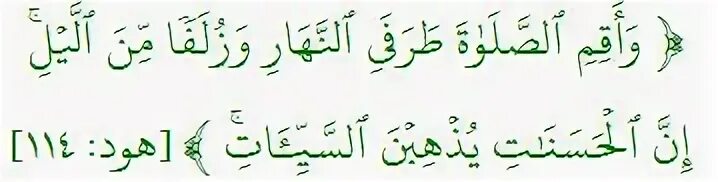 ﴿ وَأَقِمِ ٱلصَّلَوٰةَ طَرَفَيِ ٱلنَّهَارِ وَزُلَفًا مِّنَ ٱلَّيْلِۚ
إِنَّ ٱلْحَسَنَٰتِ يُذْهِبْنَ ٱلسَّيِّـَٔاتِۚ ﴾ [هود: ١١٤]